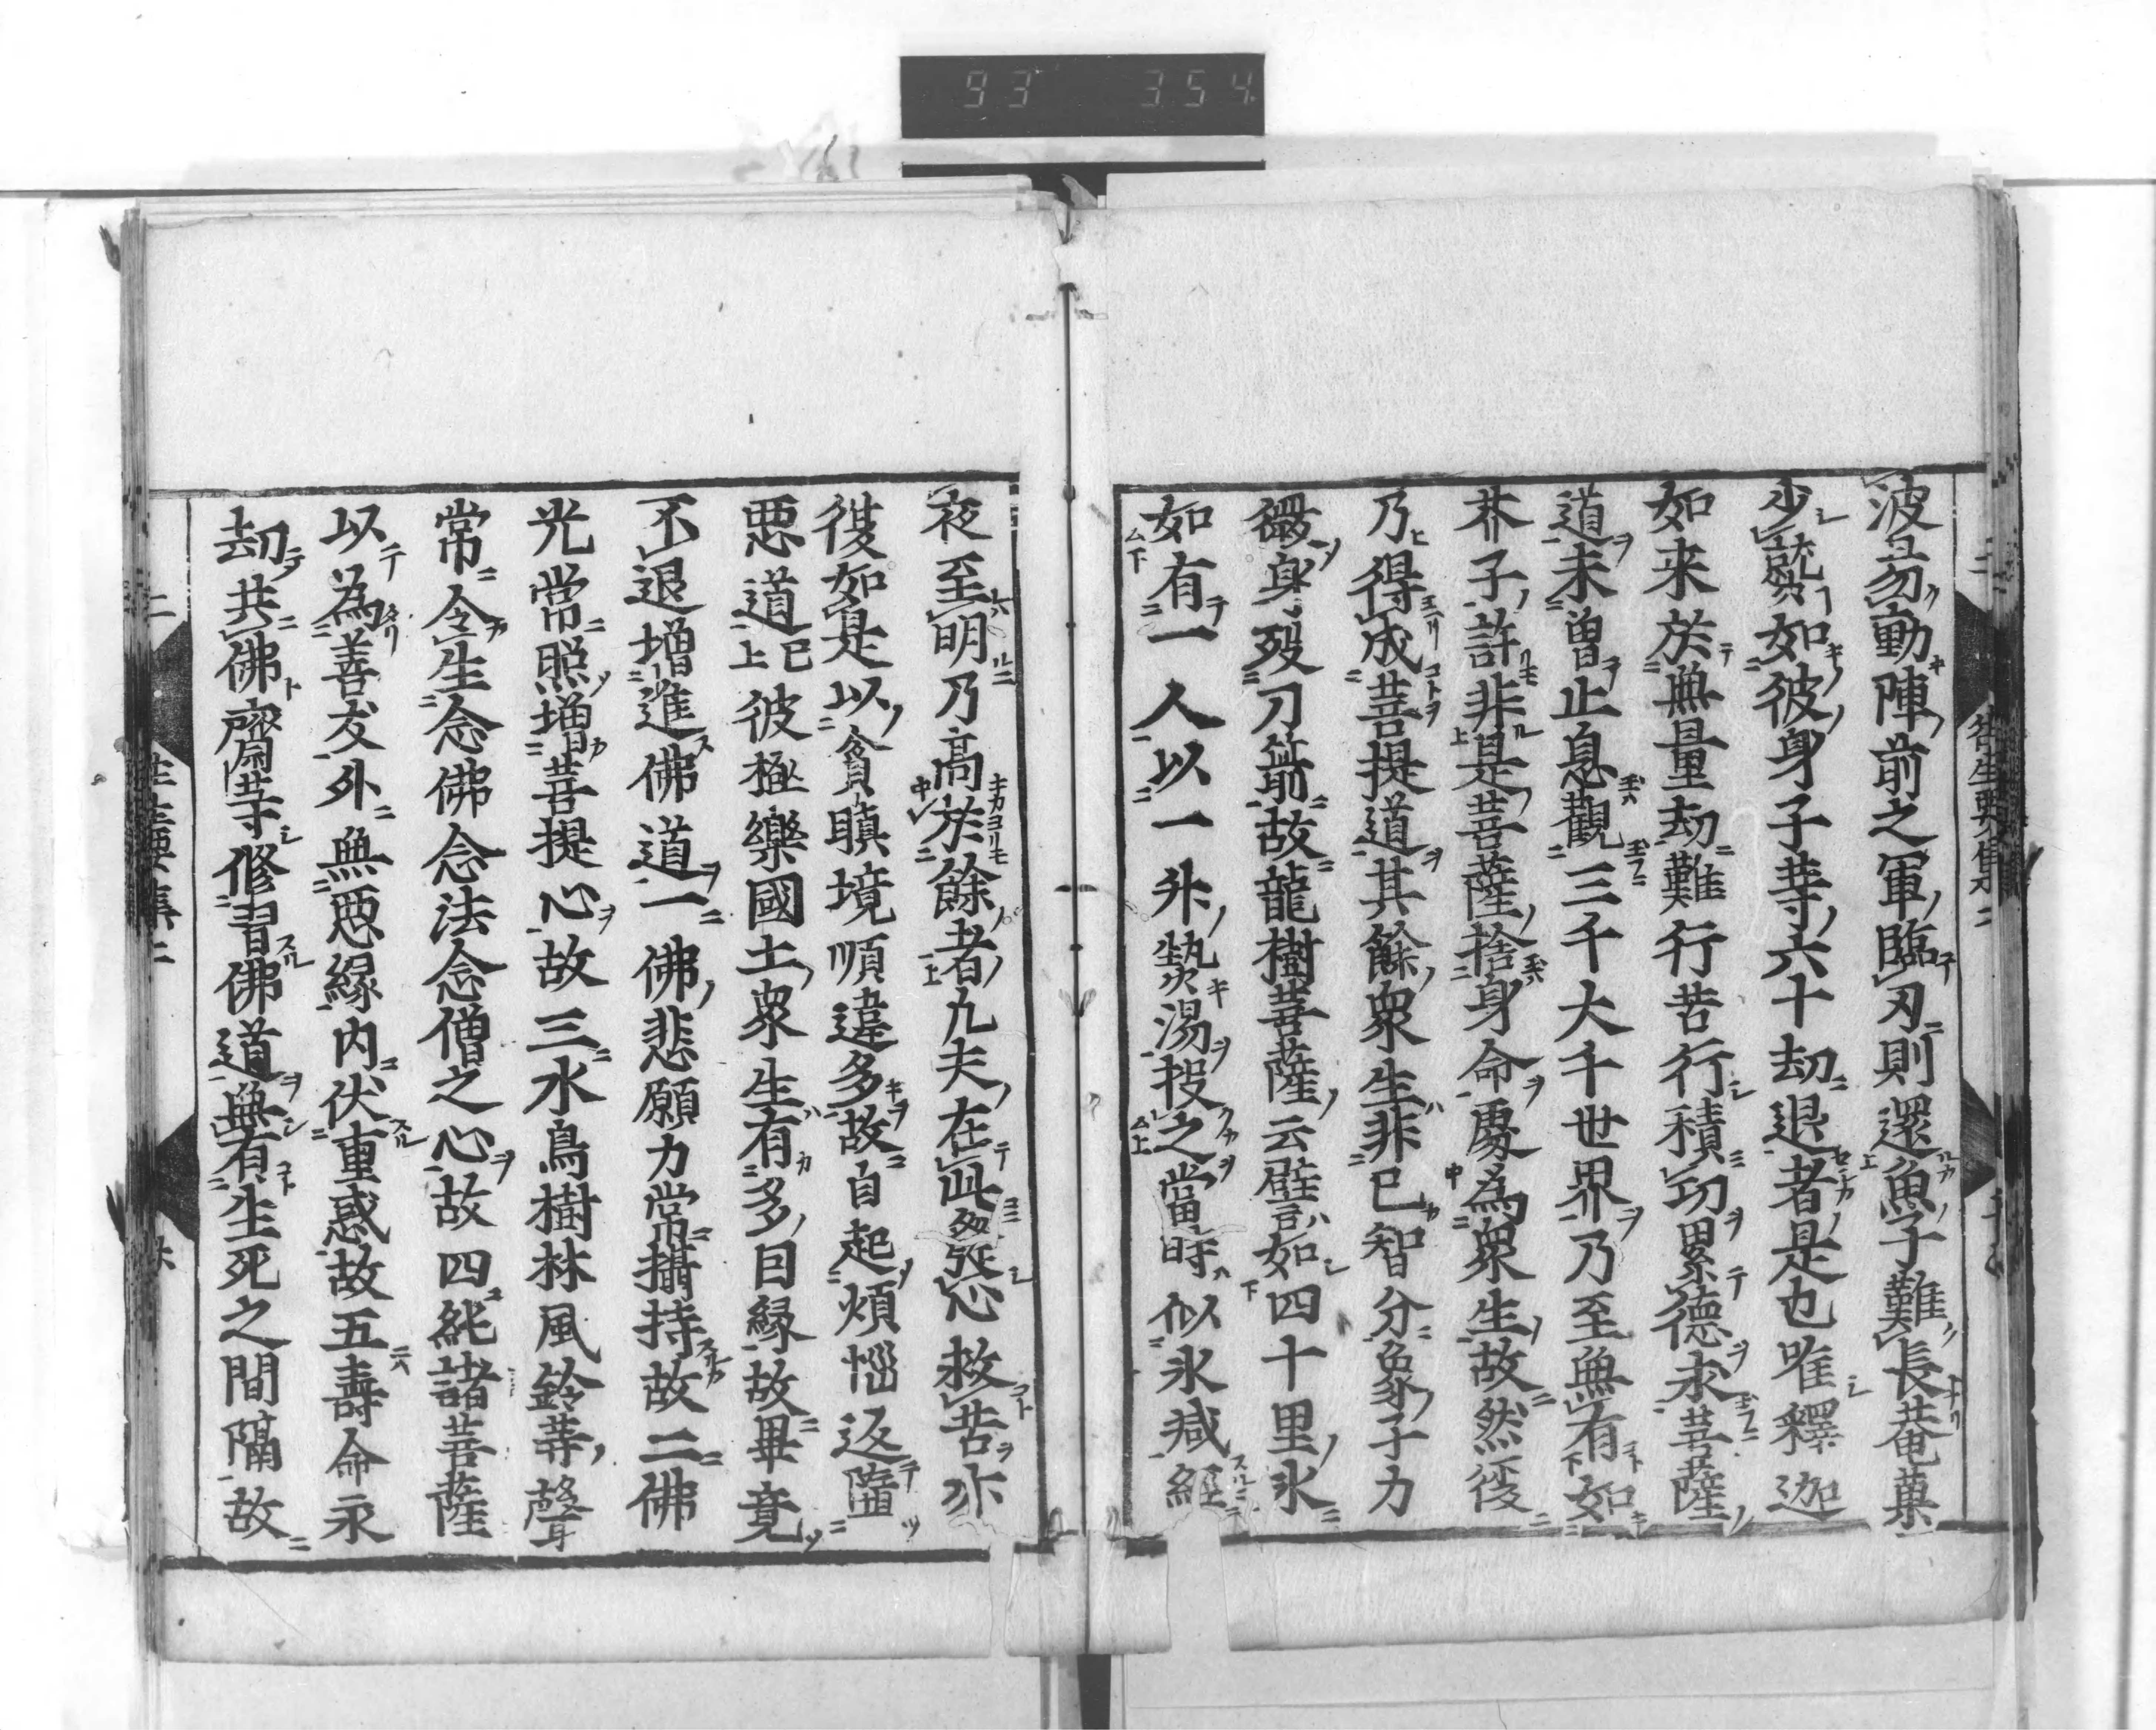 93 354
波易動陣前之軍臨刃則還魚子難長菴菓
少就如彼身子等六十劫退者是也唯釋迦
如来於無量劫難行苦行積功累德求菩薩
道未曽止息觀三千大千世界乃至無有如
芥子許非是菩薩捨身命處為衆生故然後
乃得成菩提道其餘衆生非己智分象子力
微身殁刀箭故龍樹菩薩云譬如四十里氷
如有一人以一升𤍠湯投之當時似氷减經
夜至明乃高於餘者凡夫在此發心救苦亦
復如是以貪瞋境順違多故自起煩惱返墮
悪道已上彼極樂國土衆生有多因縁故畢竟
不退增進佛道一佛悲願力常攝持故二佛
光常照增菩提心故三水鳥樹林風鈴等聲
常令生念佛念法念僧之心故四純諸菩薩
以為善友外無悪縁内伏重惑故五壽命永
劫共佛齊等修習佛道無有生死之間隔故